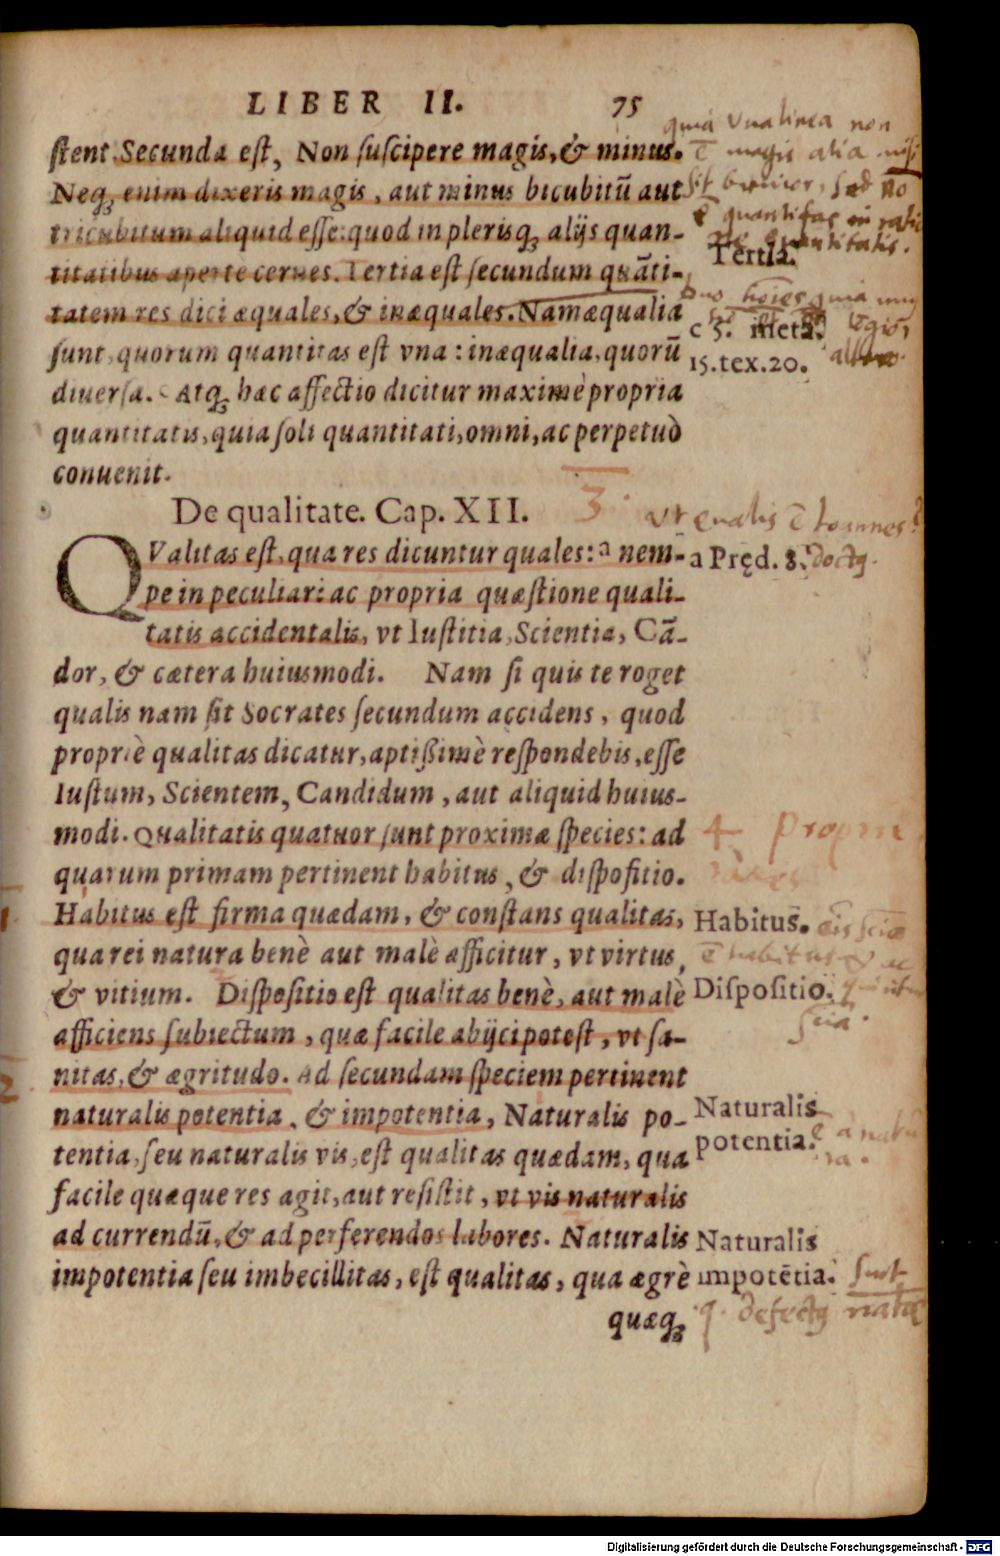 LIBER II. 75
ſtent. Secunda eſt, Non ſuſcipere magis, & minus.
Neq; enim dixeris magis, aut minus bicubitū aut
tricubitum aliquid eſſe: quod in plerisq; alijs quan-
titatibus aperte cernes. Tertia eſt ſecundum quāti-
tatem res dici æquales, & inæquales. Nam æqualia
ſunt, quorum quantitas eſt vna: inæqualia, quorū
diuerſa. Atq; hæc affectio dicitur maximè propria
quantitatis, quia ſoli quantitati, omni, ac perpetuò
conuenit.
quia vna linea non
ē magis alia niſi
Tertia.
c 5. meta.
15. tex. 20.
De qualitate. Cap. XII.
3.
QValitas eſt, qua res dicuntur quales: a nem-
pe in peculiari ac propria quæſtione quali-
tatis accidentalis, vt Iuſtitia, Scientia, Cā-
dor, & cætera huiusmodi. Nam ſi quis te roget
qualis nam ſit Socrates ſecundum accidens, quod
propriè qualitas dicatur, aptißimè reſpondebis, eſſe
Iuſtum, Scientem, Candidum, aut aliquid huius-
modi. Qualitatis quatuor ſunt proximæ ſpecies: ad
quarum primam pertinent habitus, & diſpoſitio.
Habitus eſt firma quædam, & conſtans qualitas,
qua rei natura benè aut malè afficitur, vt virtus,
& vitium. Diſpoſitio eſt qualitas benè, aut malè
afficiens ſubiectum, quæ facile abijci poteſt, vt ſa-
nitas, & ægritudo. Ad ſecundam ſpeciem pertinent
naturalis potentia, & impotentia, Naturalis po-
tentia, ſeu naturalis vis, eſt qualitas quædam, qua
facile quæque res agit, aut reſiſtit, vt vis naturalis
ad currendū, & ad perferendos labores. Naturalis
impotentia ſeu imbecillitas, eſt qualitas, qua ægrè
quæq;
vt qualis ē Ioannes?
a Pręd. 8. doctꝰ.
4
1.
2
Habitus.
Diſpoſitio.
Naturalis
potentia.
Naturalis
impotētia.
defectꝰ
Digitalisierung gefördert durch die Deutsche Forschungsgemeinschaft - DFG